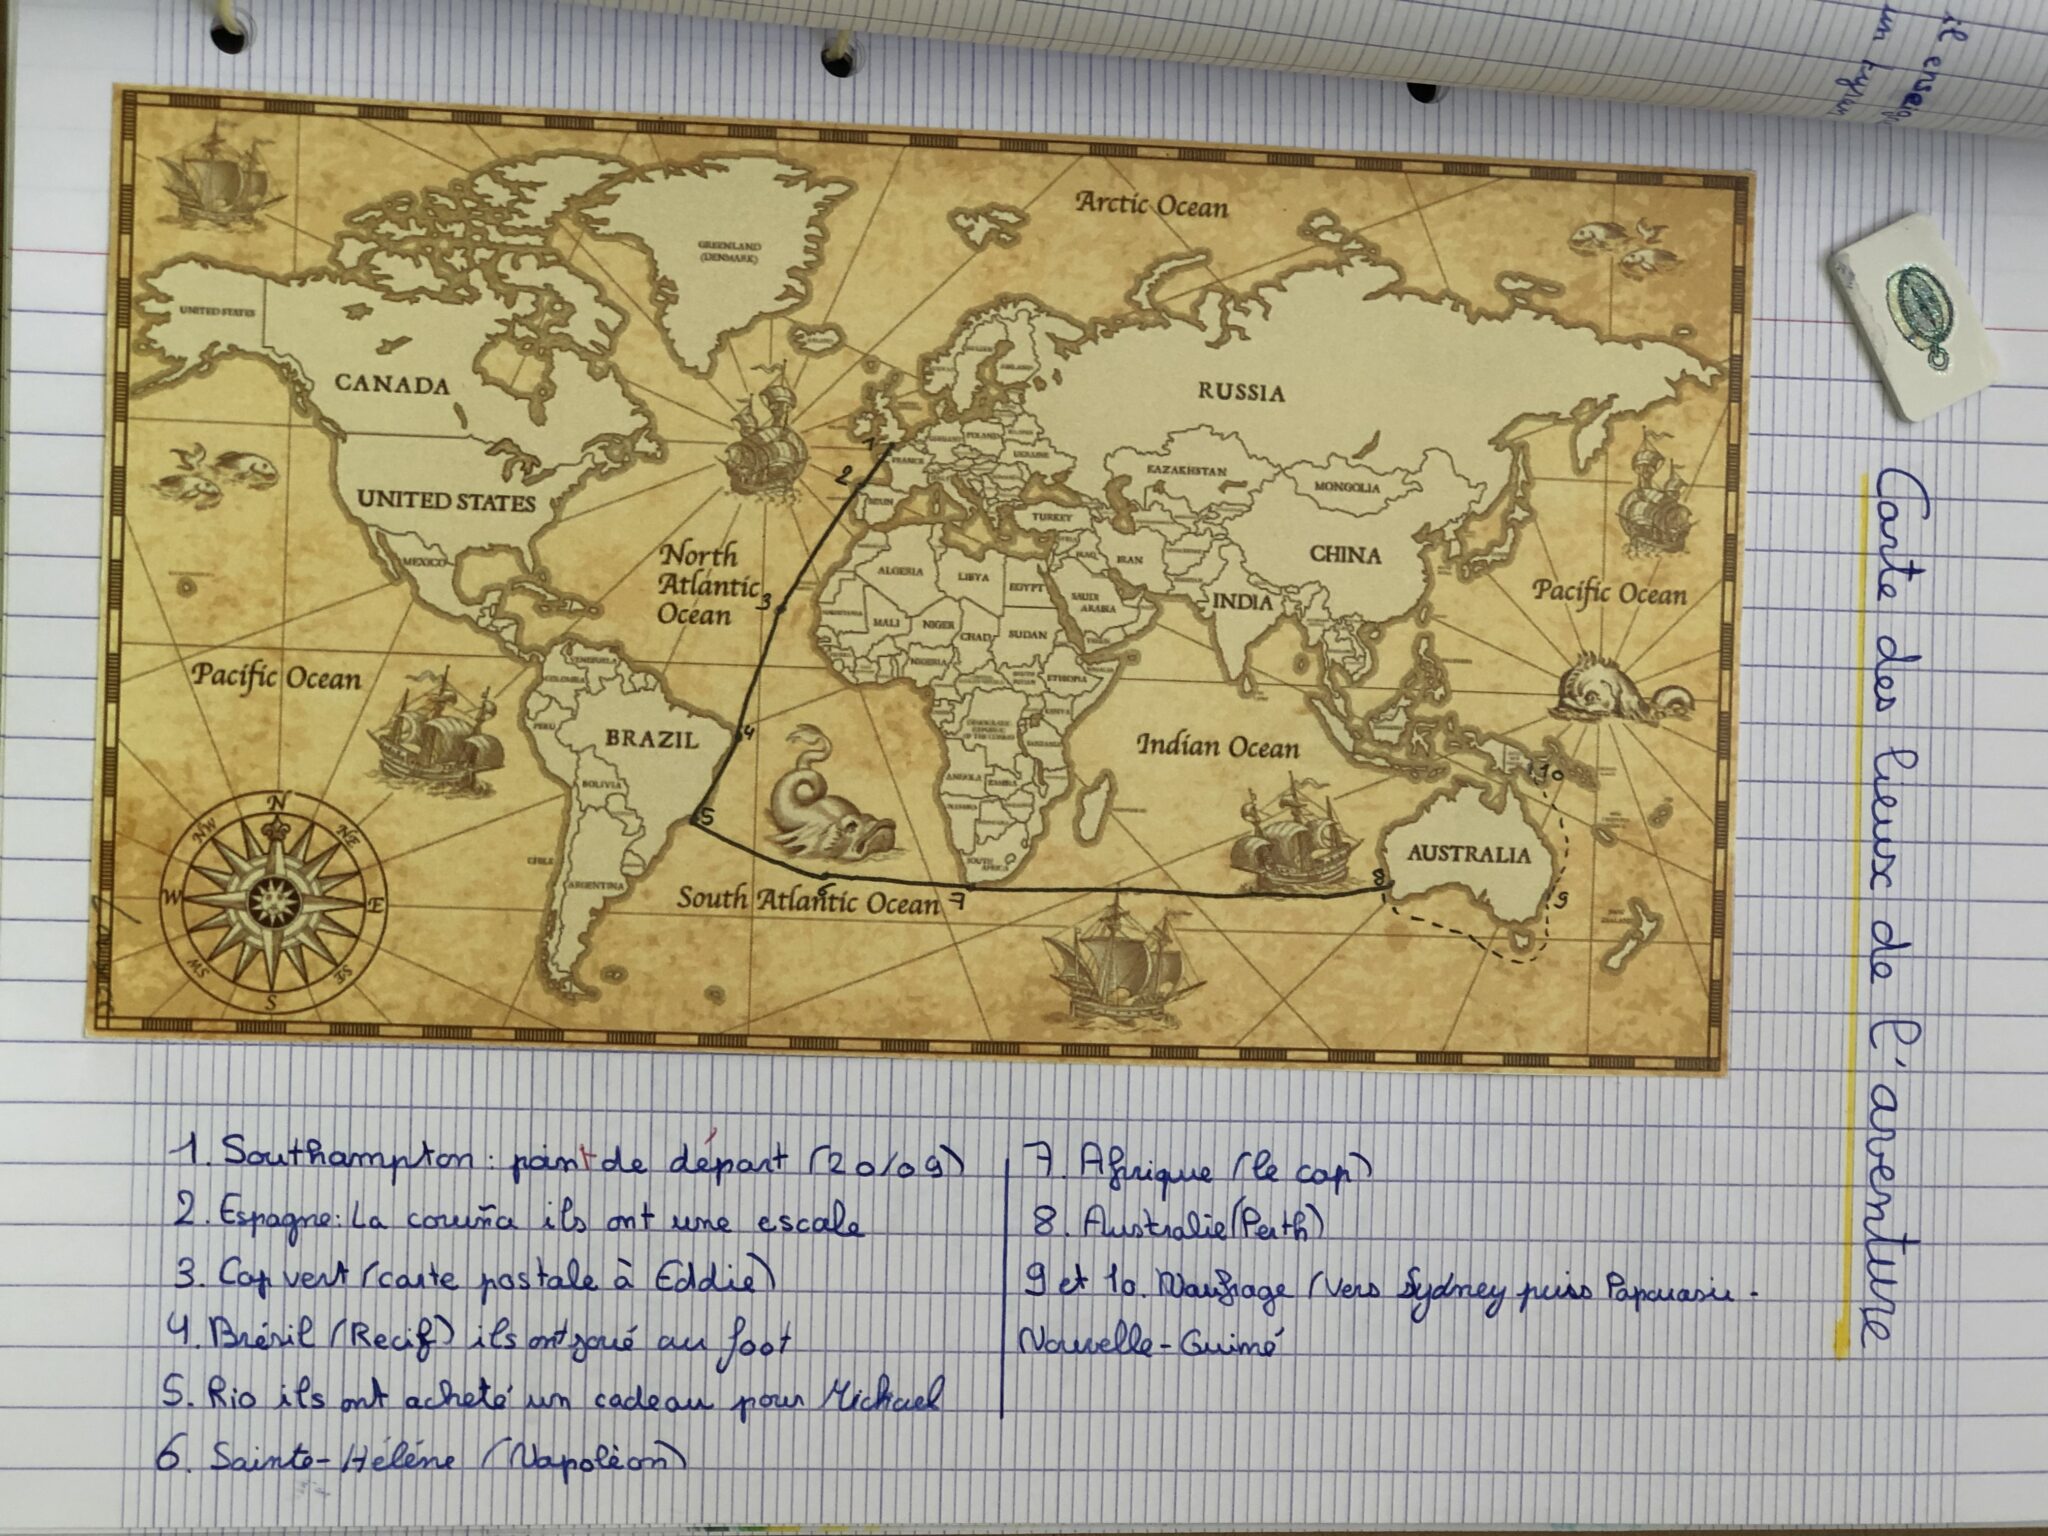 il enseig
un tyran
Carte des lieux de l'aventure
Arctic Ocean
GREENLAND
(DENMARK)
UNITED STATES
CANADA
RUSSIA
UNITED STATES
KAZAKHSTAN
MONGOLIA
POLAND
UKRAINE
FRANCE
SPAIN
TURKEY
IRAQ
IRAN
CHINA
MEXICO
North
Atlantic
Ocean
ALGERIA
LIBYA
EGYPT
SAUDI
ARABIA
INDIA
Pacific Ocean
MALI
NIGER
CHAD
SUDAN
NIGERIA
ETHIOPIA
Pacific Ocean
VENEZUELA
COLOMBIA
PERU
BRAZIL
BOLIVIA
Indian Ocean
ANGOLA
CHILE
ARGENTINA
SOUTH
AFRICA
AUSTRALIA
South Atlantic Ocean
1
2
3
4
5
6
7
8
9
10
N
NE
E
SE
S
SW
W
NW
1. Southampton : point de départ (20/09)
2. Espagne : La coruña ils ont une escale
3. Cap vert (carte postale à Eddie)
4. Brésil (Recif) ils ont joué au foot
5. Rio ils ont acheté un cadeau pour Michael
6. Sainte-Héléne (Napoléon)
7. Afrique (le cap)
8. Australie (Perth)
9 et 10. Naufrage (vers Sydney puis Papouasie-
Nouvelle-Guiné